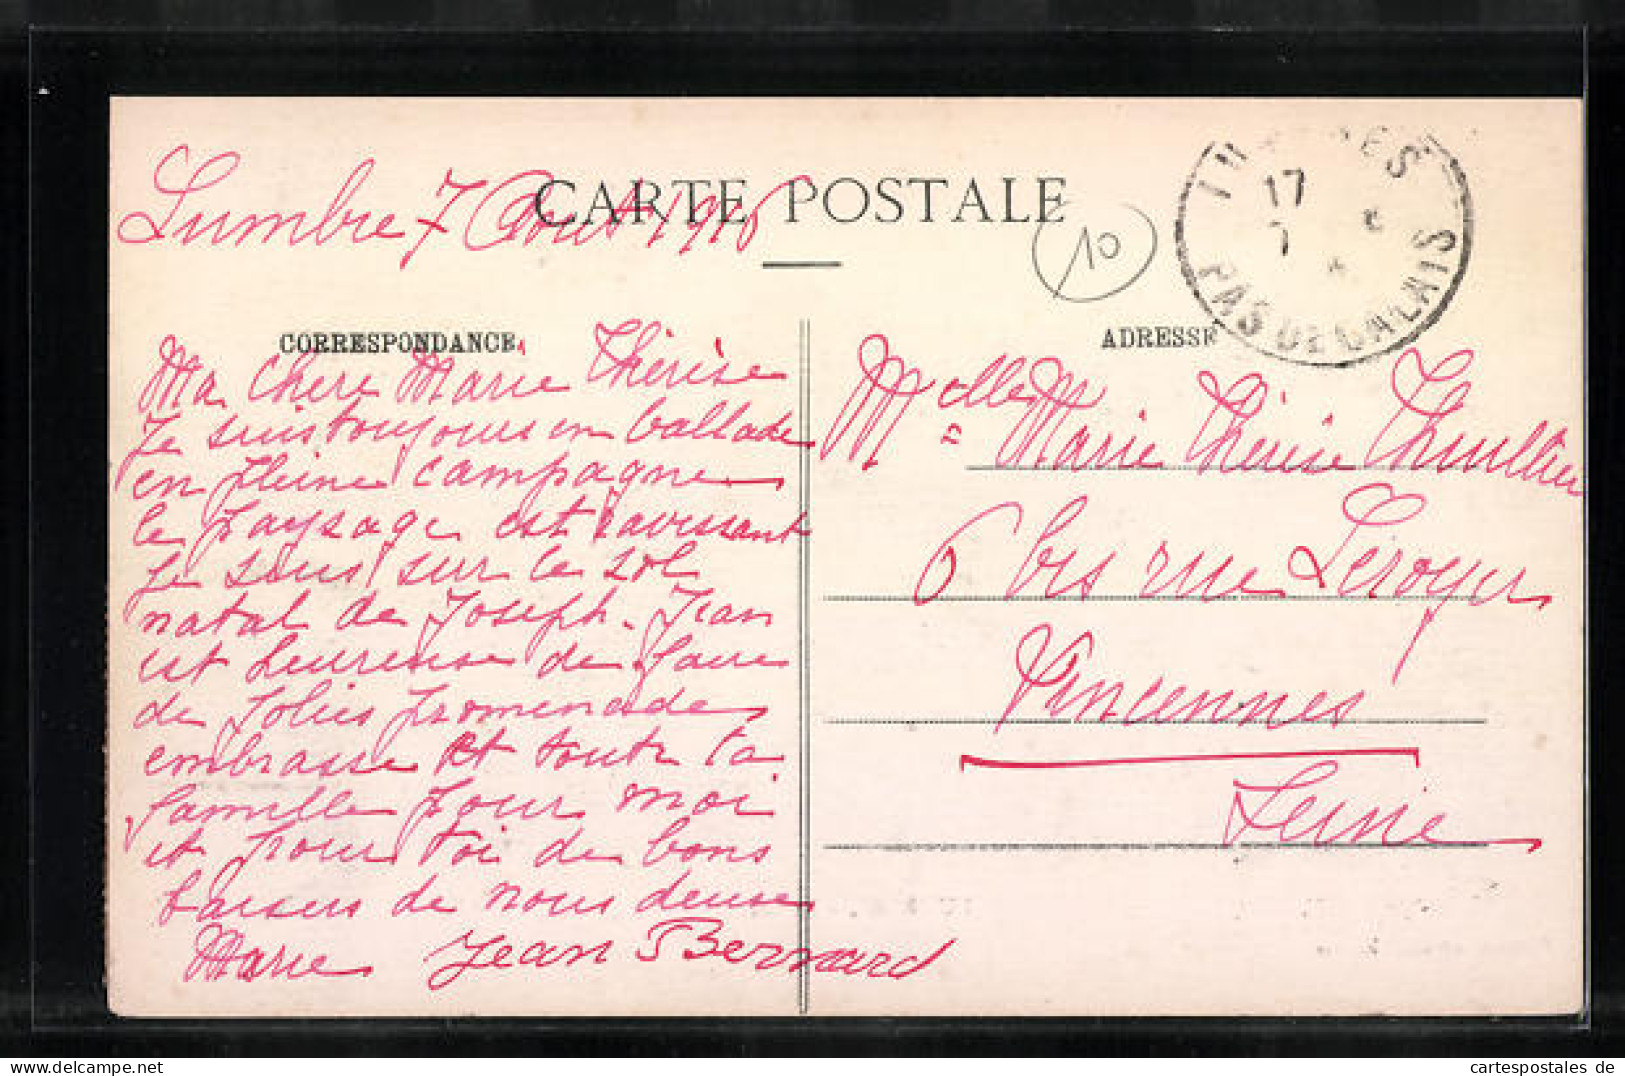 CARTE POSTALE
Lumbre 7 Août 1916
10
17
7
PAS DE CALAIS
CORRESPONDANCE
Ma Chere Marie Thérèse
Je suis toujours en ballade
en pleine campagne
le paysage est ravissant
Je suis sur le sol
natal de Joseph. Jean
est heureuse de faire
de jolies promenades
embrasse et toute ta
famille pour moi
et pour toi de bons
baisers de nous deux
Marie Jean Bernard
ADRESSE
Melle Marie Thérèse Thuillier
6 bis rue Leroyer
Vincennes
Seine
cartespostales de